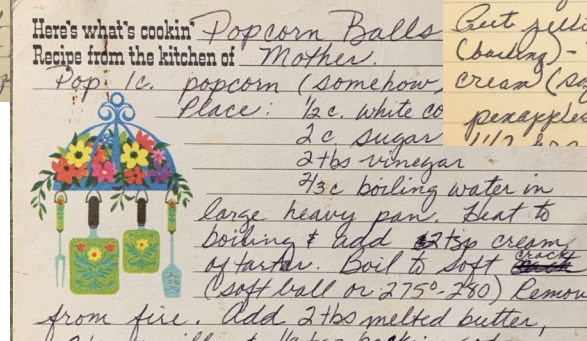 Here's what's cookin' Popcorn Balls
Recipe from the kitchen of Mother.
Pop 1c. popcorn (somehow,
Place: 1/2 c. white co
2 c. sugar
2 tbs vinegar
2/3 c boiling water in
large heavy pan. Heat to
boiling & add 2 tsp cream
of tartar. Boil to soft crack
(soft ball or 275°-280) Remov
from fire. Add 2 tbs melted butter,
(boiling) -
cream (s